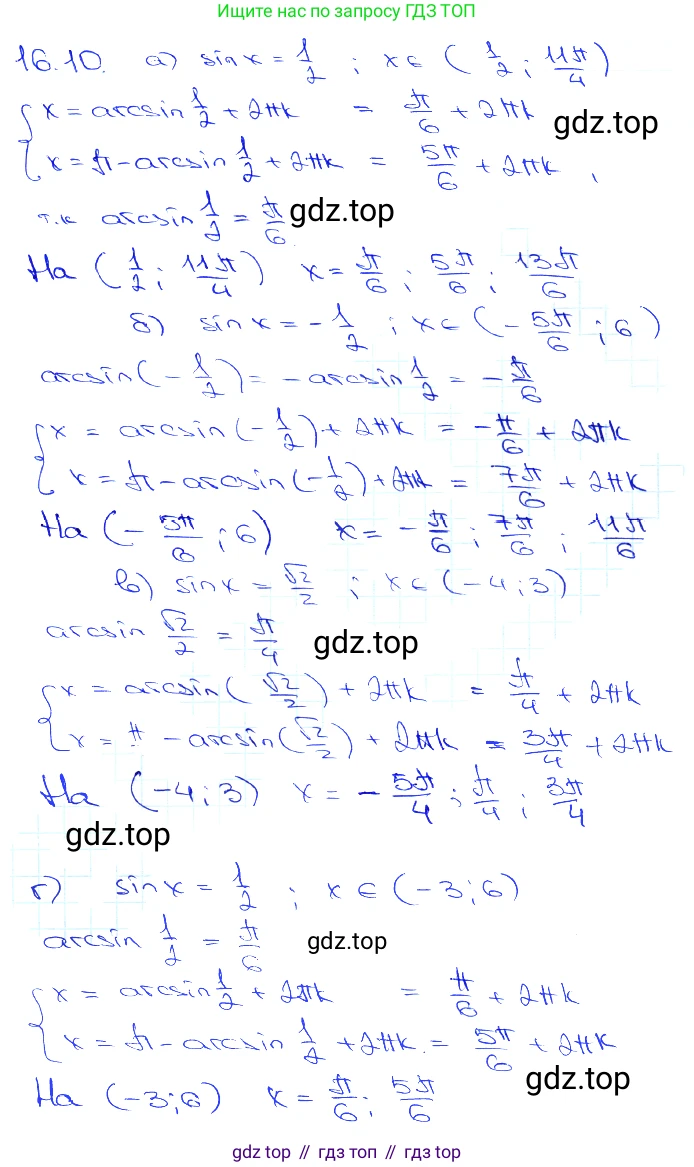 Ищите нас по запросу ГДЗ ТОП
16.10. а) sinx = 1/2 ; x∈ ( 1/2 ; 11π/4 )
{ x = arcsin 1/2 + 2πk = π/6 + 2πk
gdz.top
x = π - arcsin 1/2 + 2πk = 5π/6 + 2πk ,
т.к arcsin 1/2 = π/6.
gdz.top
На ( 1/2 ; 11π/4 ) x = π/6 ; 5π/6 ; 13π/6
б) sinx = - 1/2 ; x∈ ( - 5π/6 ; 6 )
arcsin(- 1/2) = -arcsin 1/2 = - π/6
{ x = arcsin(- 1/2) + 2πk = - π/6 + 2πk
x = π - arcsin(- 1/2) + 2πk = 7π/6 + 2πk
На ( - 5π/6 ; 6 ) x = - π/6 ; 7π/6 ; 11π/6
в) sinx = √2/2 ; x∈ (-4 ; 3)
arcsin √2/2 = π/4
gdz.top
{ x = arcsin( √2/2 ) + 2πk = π/4 + 2πk
x = π - arcsin( √2/2 ) + 2πk = 3π/4 + 2πk
На (-4 ; 3) x = - 5π/4 ; π/4 ; 3π/4
gdz.top
г) sinx = 1/2 ; x∈ (-3 ; 6)
arcsin 1/2 = π/6
gdz.top
{ x = arcsin 1/2 + 2πk = π/6 + 2πk
x = π - arcsin 1/2 + 2πk. = 5π/6 + 2πk
На (-3 ; 6) x = π/6 ; 5π/6
gdz.top
gdz top // гдз топ // гдз.топ // gdz.top